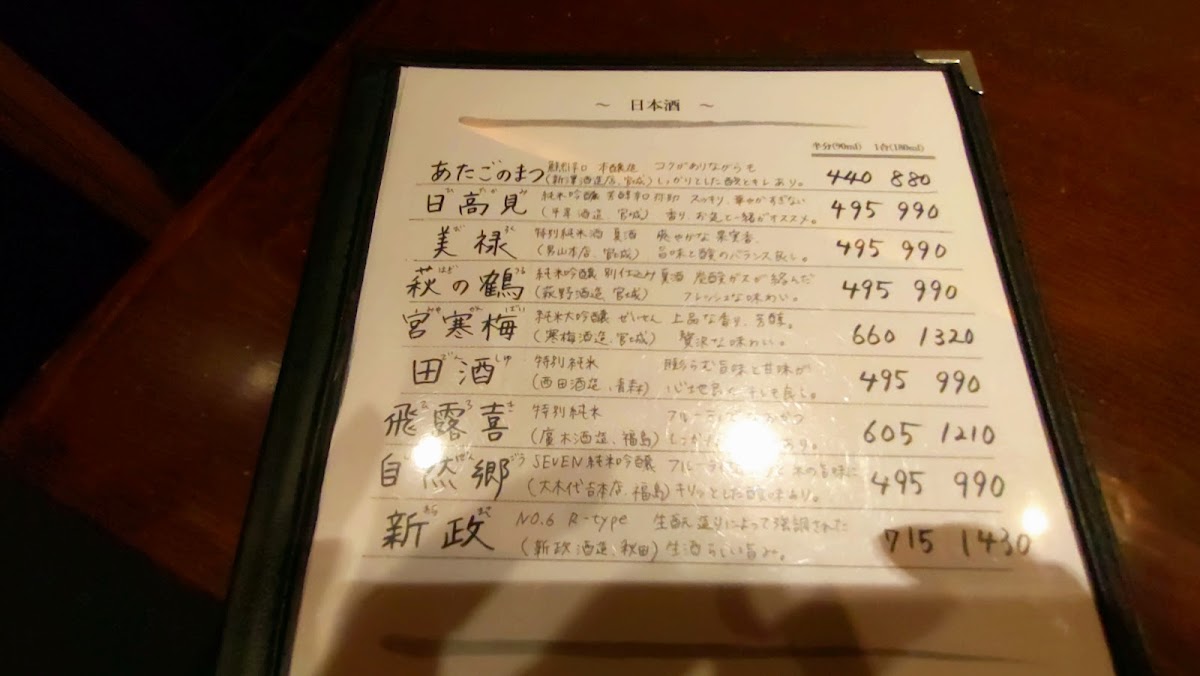 ～ 日本酒 ～
半分(90ml) 1合(180ml)
あたごのまつ 鮮烈辛口 本醸造 コクがありながらも 440 880
(新澤酒造店、宮城) しっかりとした酸とキレあり。
ひ だか み
日高見 純米吟醸 芳醇辛口 弥助 スッキリ、華やかすぎない 495 990
(平孝酒造、宮城) 香り、お魚と一緒がオススメ。
み ろく
美禄 特別純米酒 夏酒 爽やかな果実香、 495 990
(男山本店、宮城) 旨味と酸のバランス良し。
はぎ つる
萩の鶴 純米吟醸 別仕込み 夏酒 炭酸ガスが絡んだ 495 990
(萩野酒造、宮城) フレッシュな味わい。
みや かん ばい
宮寒梅 純米大吟醸 ぜいせん 上品な香り、芳醇。 660 1320
(寒梅酒造、宮城) 贅沢な味わい。
でん しゅ
田酒 特別純米 膨らむ旨味と甘味が 495 990
(西田酒造、青森) 心地良く、キレも良し。
ひ ろ き
飛露喜 特別純米 フルーティ かつ 605 1210
(廣木酒造、福島) しっかり あり。
し ぜん ごう
自然郷 SEVEN 純米吟醸 フルーティ 米の旨味に 495 990
(大木代吉本店、福島) キリッとした酸味あり。
あら まさ
新政 NO.6 R-type 生酛造りによって強調された 715 1430
(新政酒造、秋田) 生酒らしい旨み。